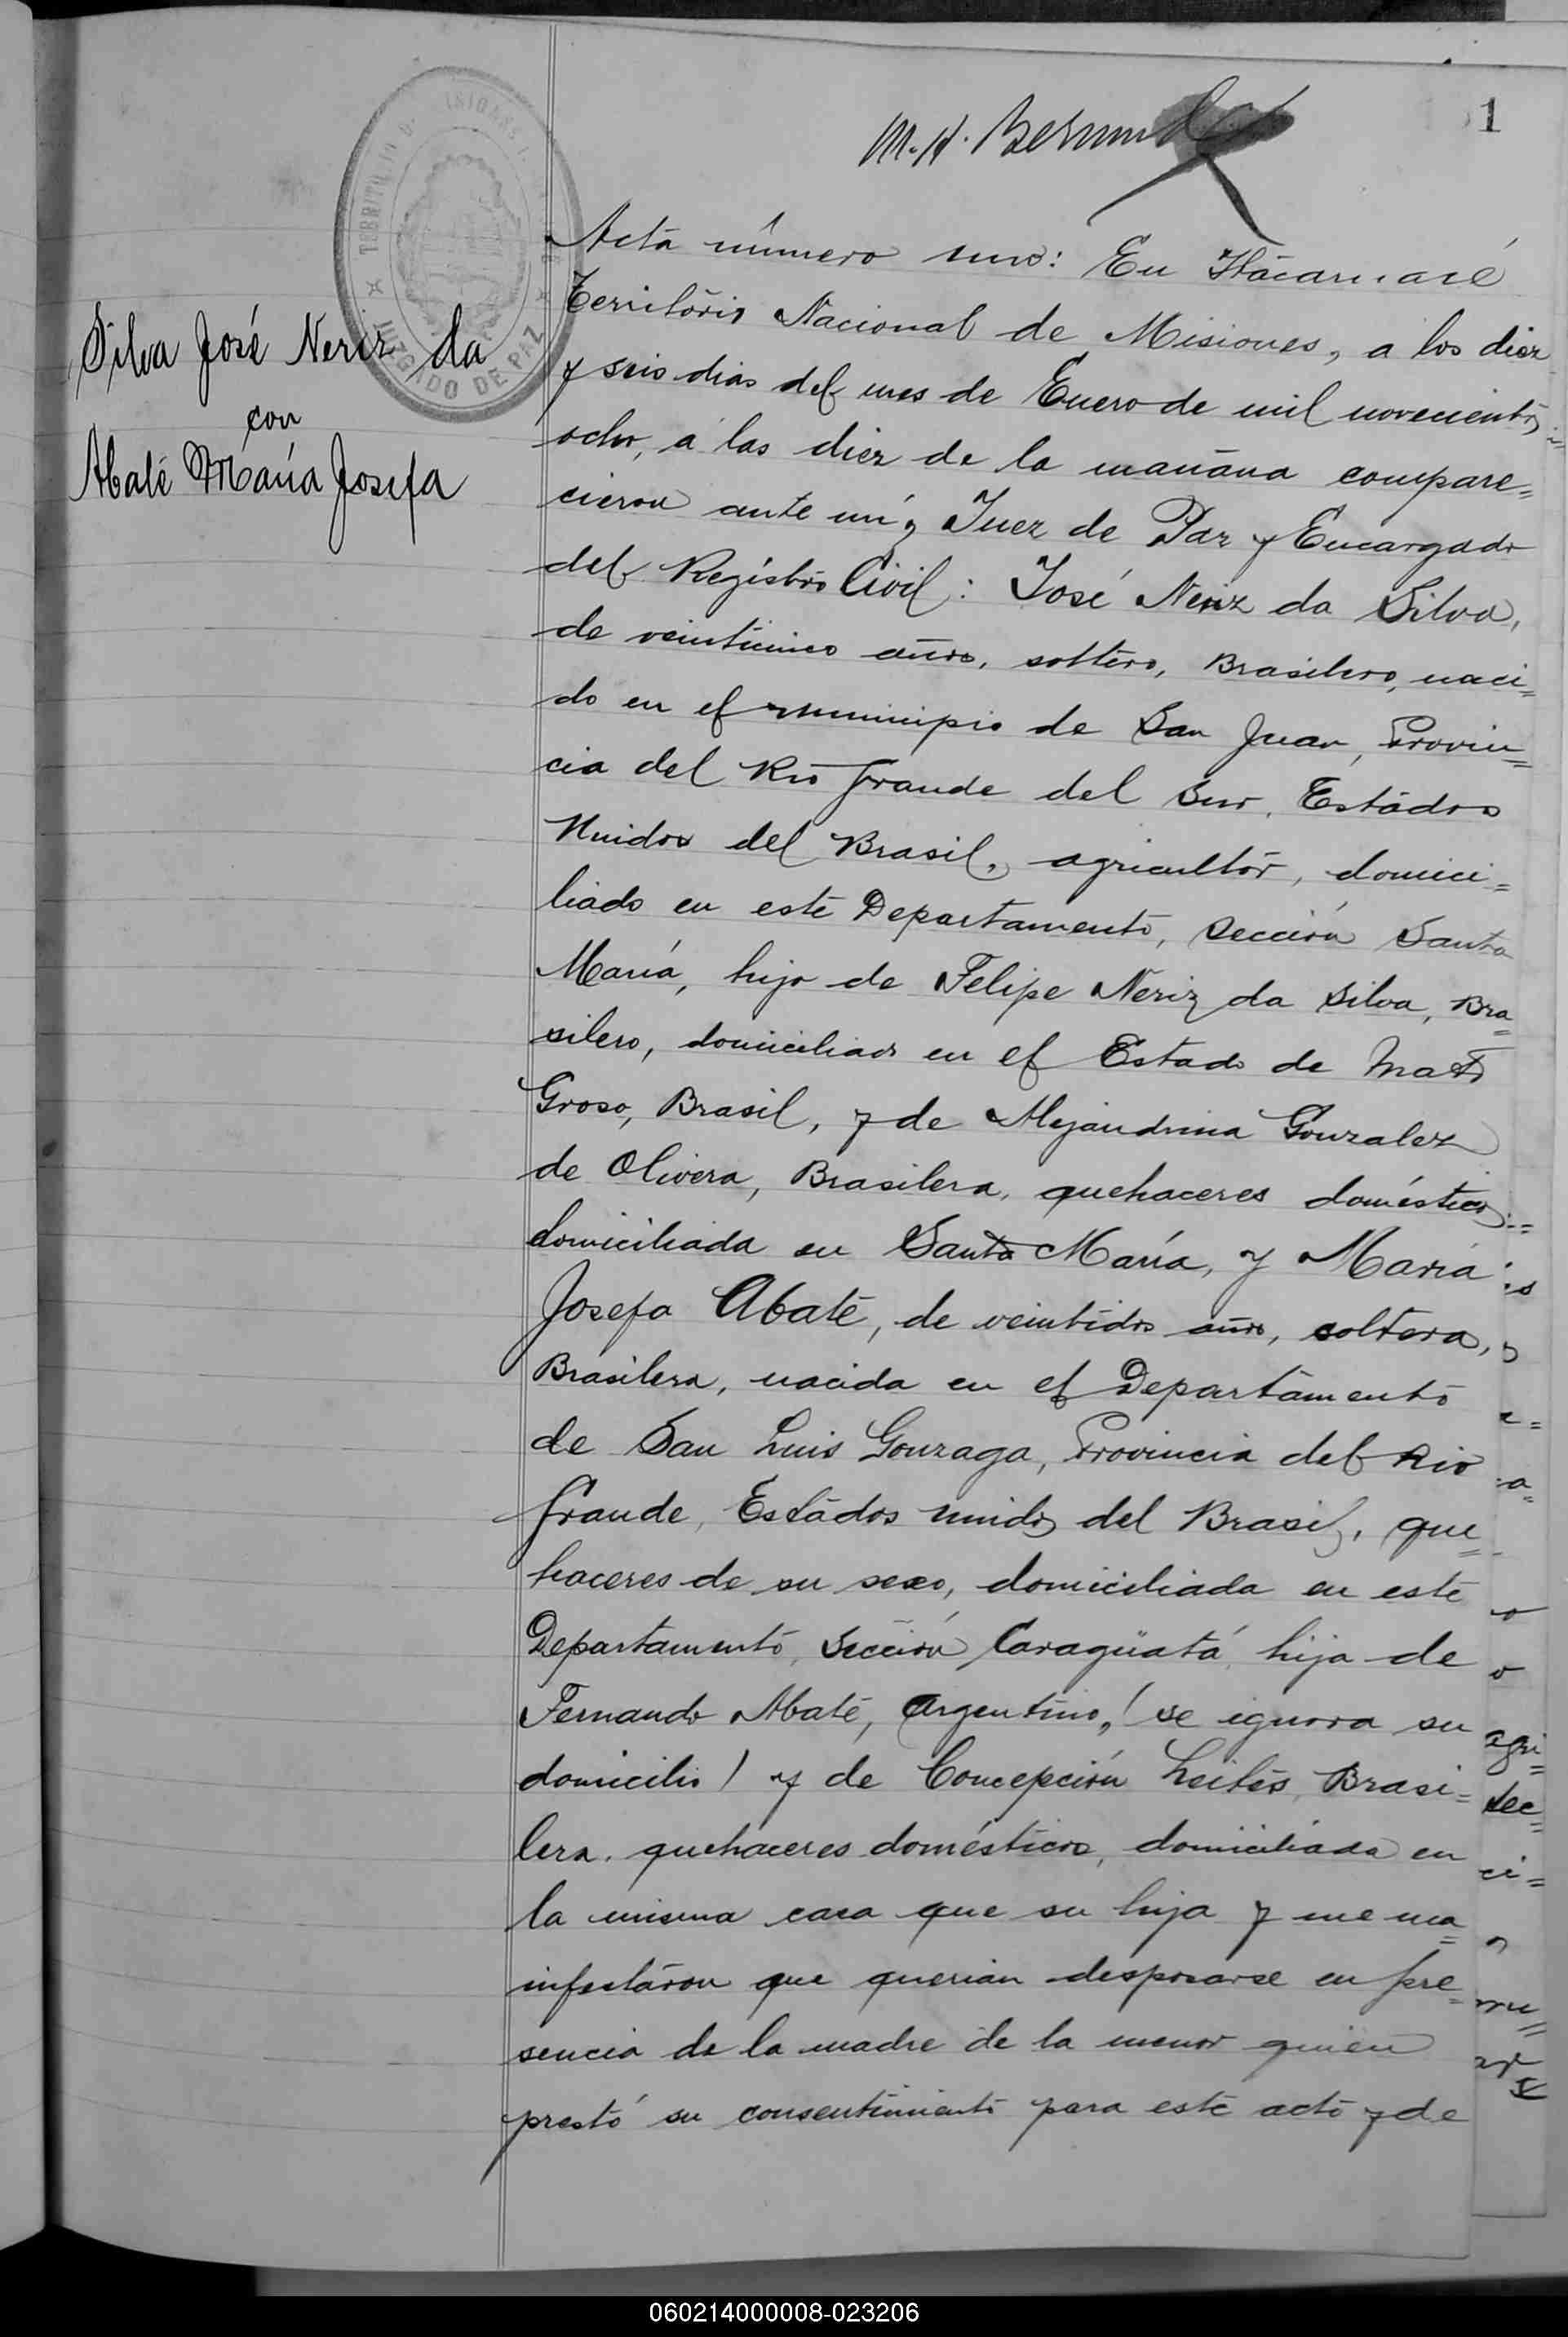 1
M. H. Bermud
Acta número uno: En Itácaruaré
Territorio Nacional de Misiones, a los diez
y seis dias del mes de Enero de mil novecientos
ocho, a las diez de la mañana compare=
cieron ante mí, Juez de Paz y Encargado
del Registro Civil: José Neriz da Silva,
de veinticinco años, soltero, Brasilero, naci=
do en el municipio de San Juan, Provin=
cia del Rio Grande del Sur, Estados
Unidos del Brasil, agricultor, domici=
liado en este Departamento, Sección Santa
María, hijo de Felipe Neriz da Silva, Bra=
silero, domiciliado en el Estado de Mato
Groso, Brasil, y de Alejandrina Gonzalez
de Olivera, Brasilera, quehaceres domésticos
domiciliada en Santa María, y María
Josefa Abaté, de veintidos años, soltera,
Brasilera, nacida en el Departamento
de San Luis Gonzaga, Provincia del Rio
Grande, Estados unidos del Brasil, que=
haceres de su sexo, domiciliada en este
Departamento, Sección Caragüatá, hija de
Fernando Abaté, Argentino, (se ignora su
domicilio) y de Concepción Leites, Brasi=
lera, quehaceres domésticos, domiciliada en
la misma casa que su hija y me ma=
nifestaron que querian desposarse en pre=
sencia de la madre de la menor quien
prestó su consentimiento para este acto y de
Silva José Neriz da
con
Abaté María Josefa
TERRITORIO D. MISIONES
JUZGADO DE PAZ
agri=
sec=
ci=
060214000008-023206